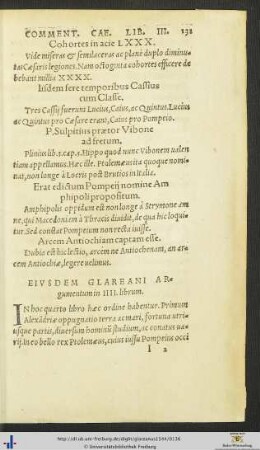 COMMENT. CAE. LIB. III. 131
Cohortes in acie LXXX.
Vide miseras & semilaceras ac planè duplo diminu
tas Cæsaris legiones. Nam octoginta cohortes efficere de
bebant milia XXXX.
Iisdem fere temporibus Cassius
cum Classe.
Tres Cassij fuerunt Lucius, Caius, ac Quintus. Lucius
ac Quintus pro Cæsare erant, Caius pro Pompeio.
P. Sulpitius prætor Vibone
ad fretum.
Plinius lib. 3. cap. 5. Hippo quod nunc Vibonem valen
tiam appellamus. Hæc ille. Ptolemæus ita quoque nomi
nat, non longè à Locris post Brutios in Italia.
Erat edictum Pompeij nomine Am
phipoli propositum.
Amphipolis oppidum est non longè à Strymone am
ne, qui Macedoniam à Thracia diuidit, de qua hic loqui
tur. Sed constat Pompeium non recta iuisse.
Arcem Antiochiam captam esse.
Dubia est hic lectio, arcem ne Antiochenam, an ar
cem Antiochiæ, legere uelimus.
EIVSDEM GLAREANI AR
gumentum in IIII. librum.
IN hoc quarto libro hæc ordine habentur. Primum
Alexādriæ oppugnatio terra ac mari, fortuna utri
usque partis, diuersum hominū studium, ac conatus ua
rij. In eo bello rex Ptolemæus, cuius iussu Pompeius occi
I 2
© Universitätsbibliothek Freiburg